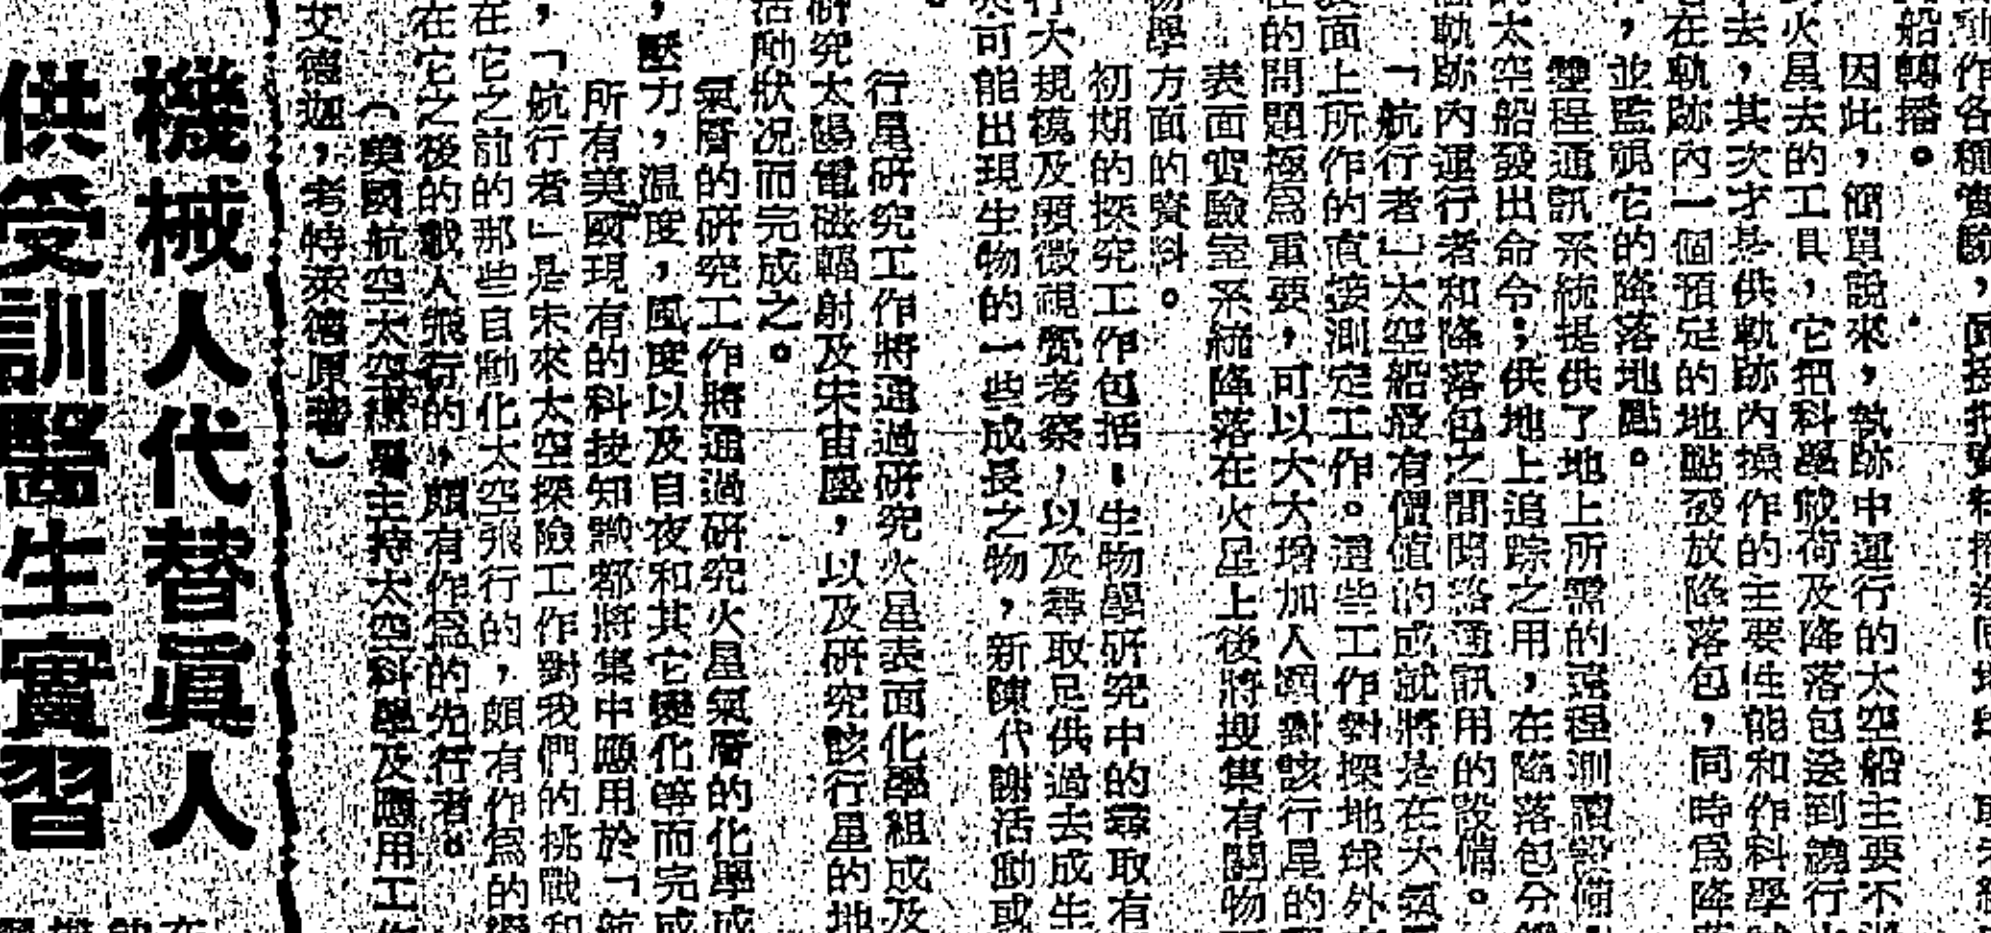 動作各種實驗，直接把資料
船轉播。
因此，簡單說來，軌跡中運行的太空船主要不
火星去的工具，它把科學載荷及降落包送到繞行
去，其次才是供軌跡內操作的主要性能和作科學
在軌跡內一個預定的地點發放降落包，同時爲降
，並監視它的降落地點。
雙程通訊系統提供了地上所需的遠程測讀設備，
太空船發出命令；供地上追踪之用，在降落包分
軌跡內運行者和降落包之間開啓通訊用的設備。
「航行者」太空船最有價值的成就將是在大氣
表面上所作的直接測定工作。這些工作對探地球外
的問題極爲重要，可以大大增加人類對該行星的
表面實驗室系統降落在火星上後將搜集有關物
學方面的資料。
初期的探究工作包括：生物學研究中的尋取有
行大規模及顯微視覺考察，以及尋取足供過去成生
可能出現生物的一些成長之物，新陳代謝活動或
行星研究工作將通過研究火星表面化學組成及
研究太陽電磁輻射及宋宙塵，以及研究該行星的地
活動狀況而完成之。
氣層的研究工作將通過研究火星氣層的化學成
，壓力，溫度，風度以及自夜和其它變化等而完成
所有美國現有的科技知識都將集中應用於「航
，「航行者」是未來太空探險工作對我們的挑戰和
在它之前的那些自動化太空飛行的，頗有作爲的
在它之後的載人飛行的，頗有作爲的先行者。
（美國航空太空總署主持太空科學及應用工作
艾德迦，考特萊德原著）
機械人代替眞人
供受訓醫生實習